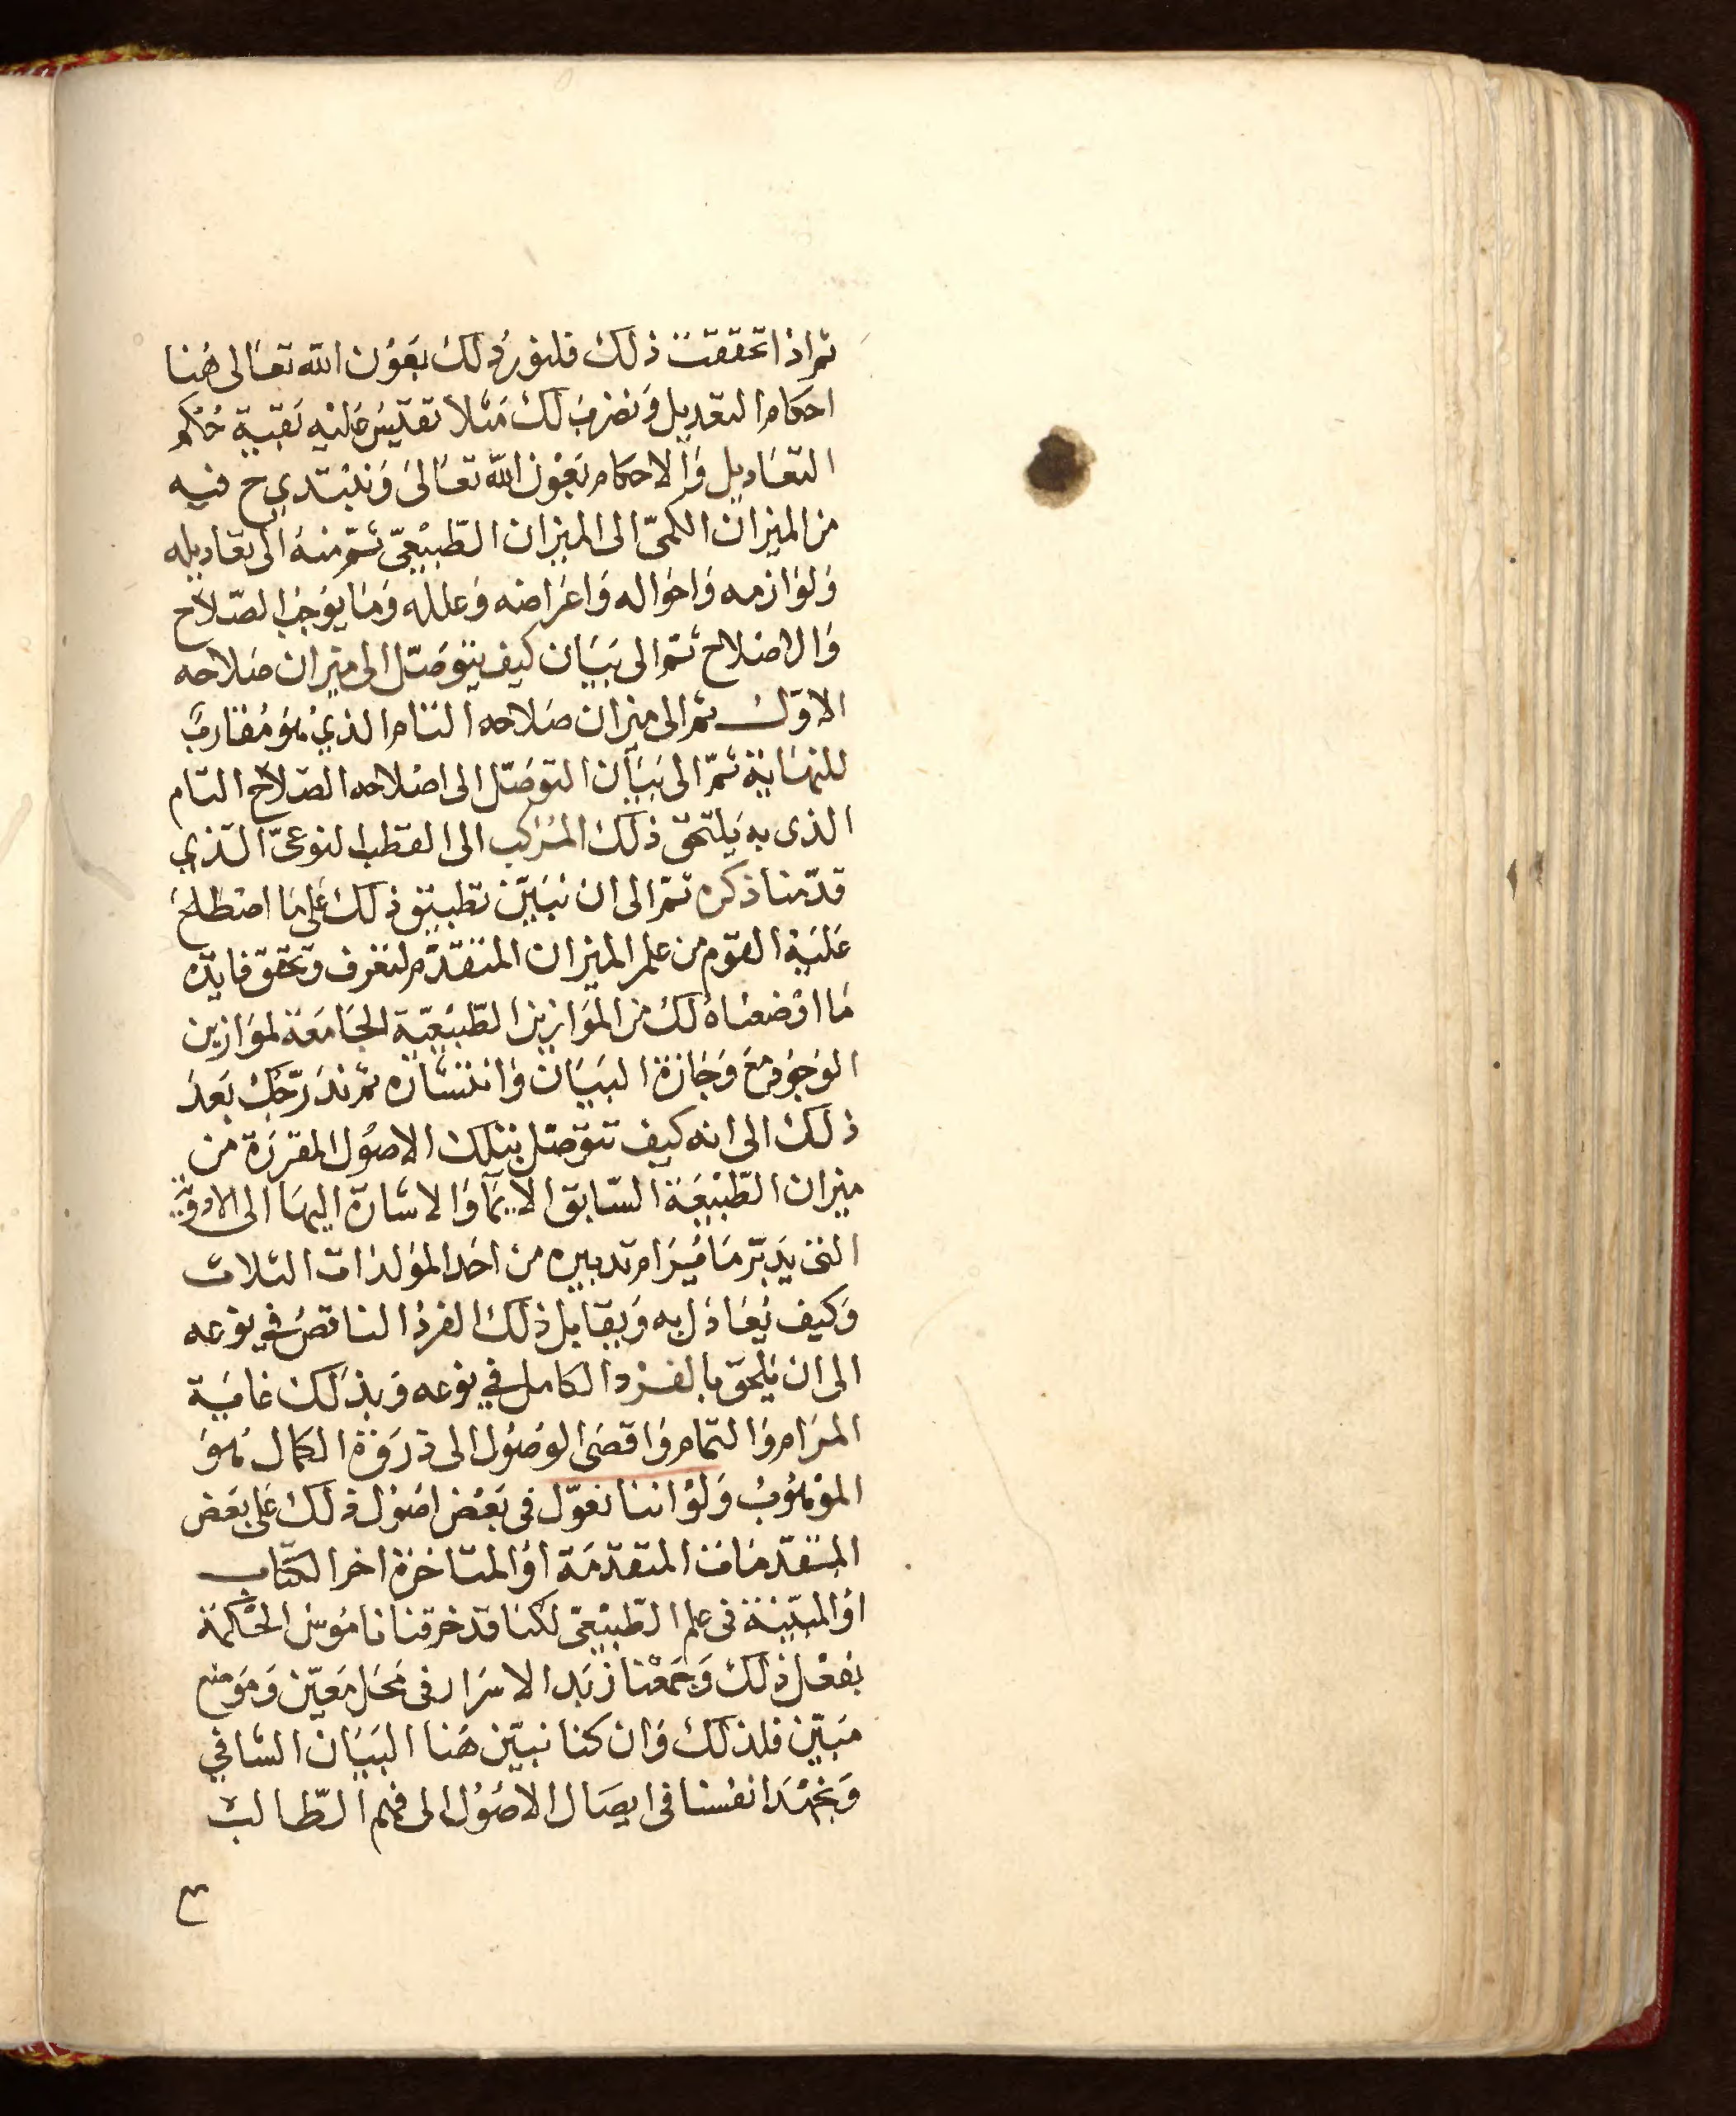 ثم اذا تحققت ذلك فلنورد لك بعون الله تعالى هنا
احكام التعديل ونضرب لك مثلا تقيس عليه بقية حكم
التعاديل والاحكام بعون الله تعالى ونبتدي ح فيه
من الميزان الكمى الى الميزان الطبيعى ثم منه الى تعاديله
ولوازمه واحواله واعراضه وعلله وما يوجب الصلاح
والاصلاح ثم الى بيان كيف يتوصل الى ميزان صلاحه
الاول ثم الى ميزان صلاحه التام الذي هو مقارب
للنهاية ثم الى بيان التوصل الى اصلاحه الصلاح التام
الذى به يلتحق ذلك المركب الى القطب النوعى الذي
قدمنا ذكره ثم الى ان نبين تطبيق ذلك على ما اصطلح
عليه القوم من علم الميزان المتقدم لتعرف وتحقق فايدة
ما اوضعناه لك من الموازين الطبيعية الجامعة لموازين
الوجود مع وجازة البيان وانتشاره ثم ندرجك بعد
ذلك الى انه كيف تتوصل بتلك الاصول المقررة من
ميزان الطبيعة السابق الايما والاشارة اليها الى الادوية
التى يدبر ما يرام تدبيره من احد المولدات الثلاث
وكيف يعادل به ويقابل ذلك الفرد الناقص في نوعه
الى ان يلحق بالفرد الكامل في نوعه وبذلك غاية
المرام والتمام واقصى الوصول الى ذروة الكمال هو
الموهوب ولو اننا نعول فى بعض اصول ذلك على بعض
المتقدمات المتقدمة او المتاخرة اخر الكتاب
او المبينة فى علم الطبيعى لكنا قد خرقنا ناموس الحكمة
بفعل ذلك وجمعنا زبد الاسرار فى محل معين وموضع
مبين فلذلك وان كنا نبين هنا البيان الشافي
ونجهد انفسنا فى ايصال الاصول الى فهم الطالب